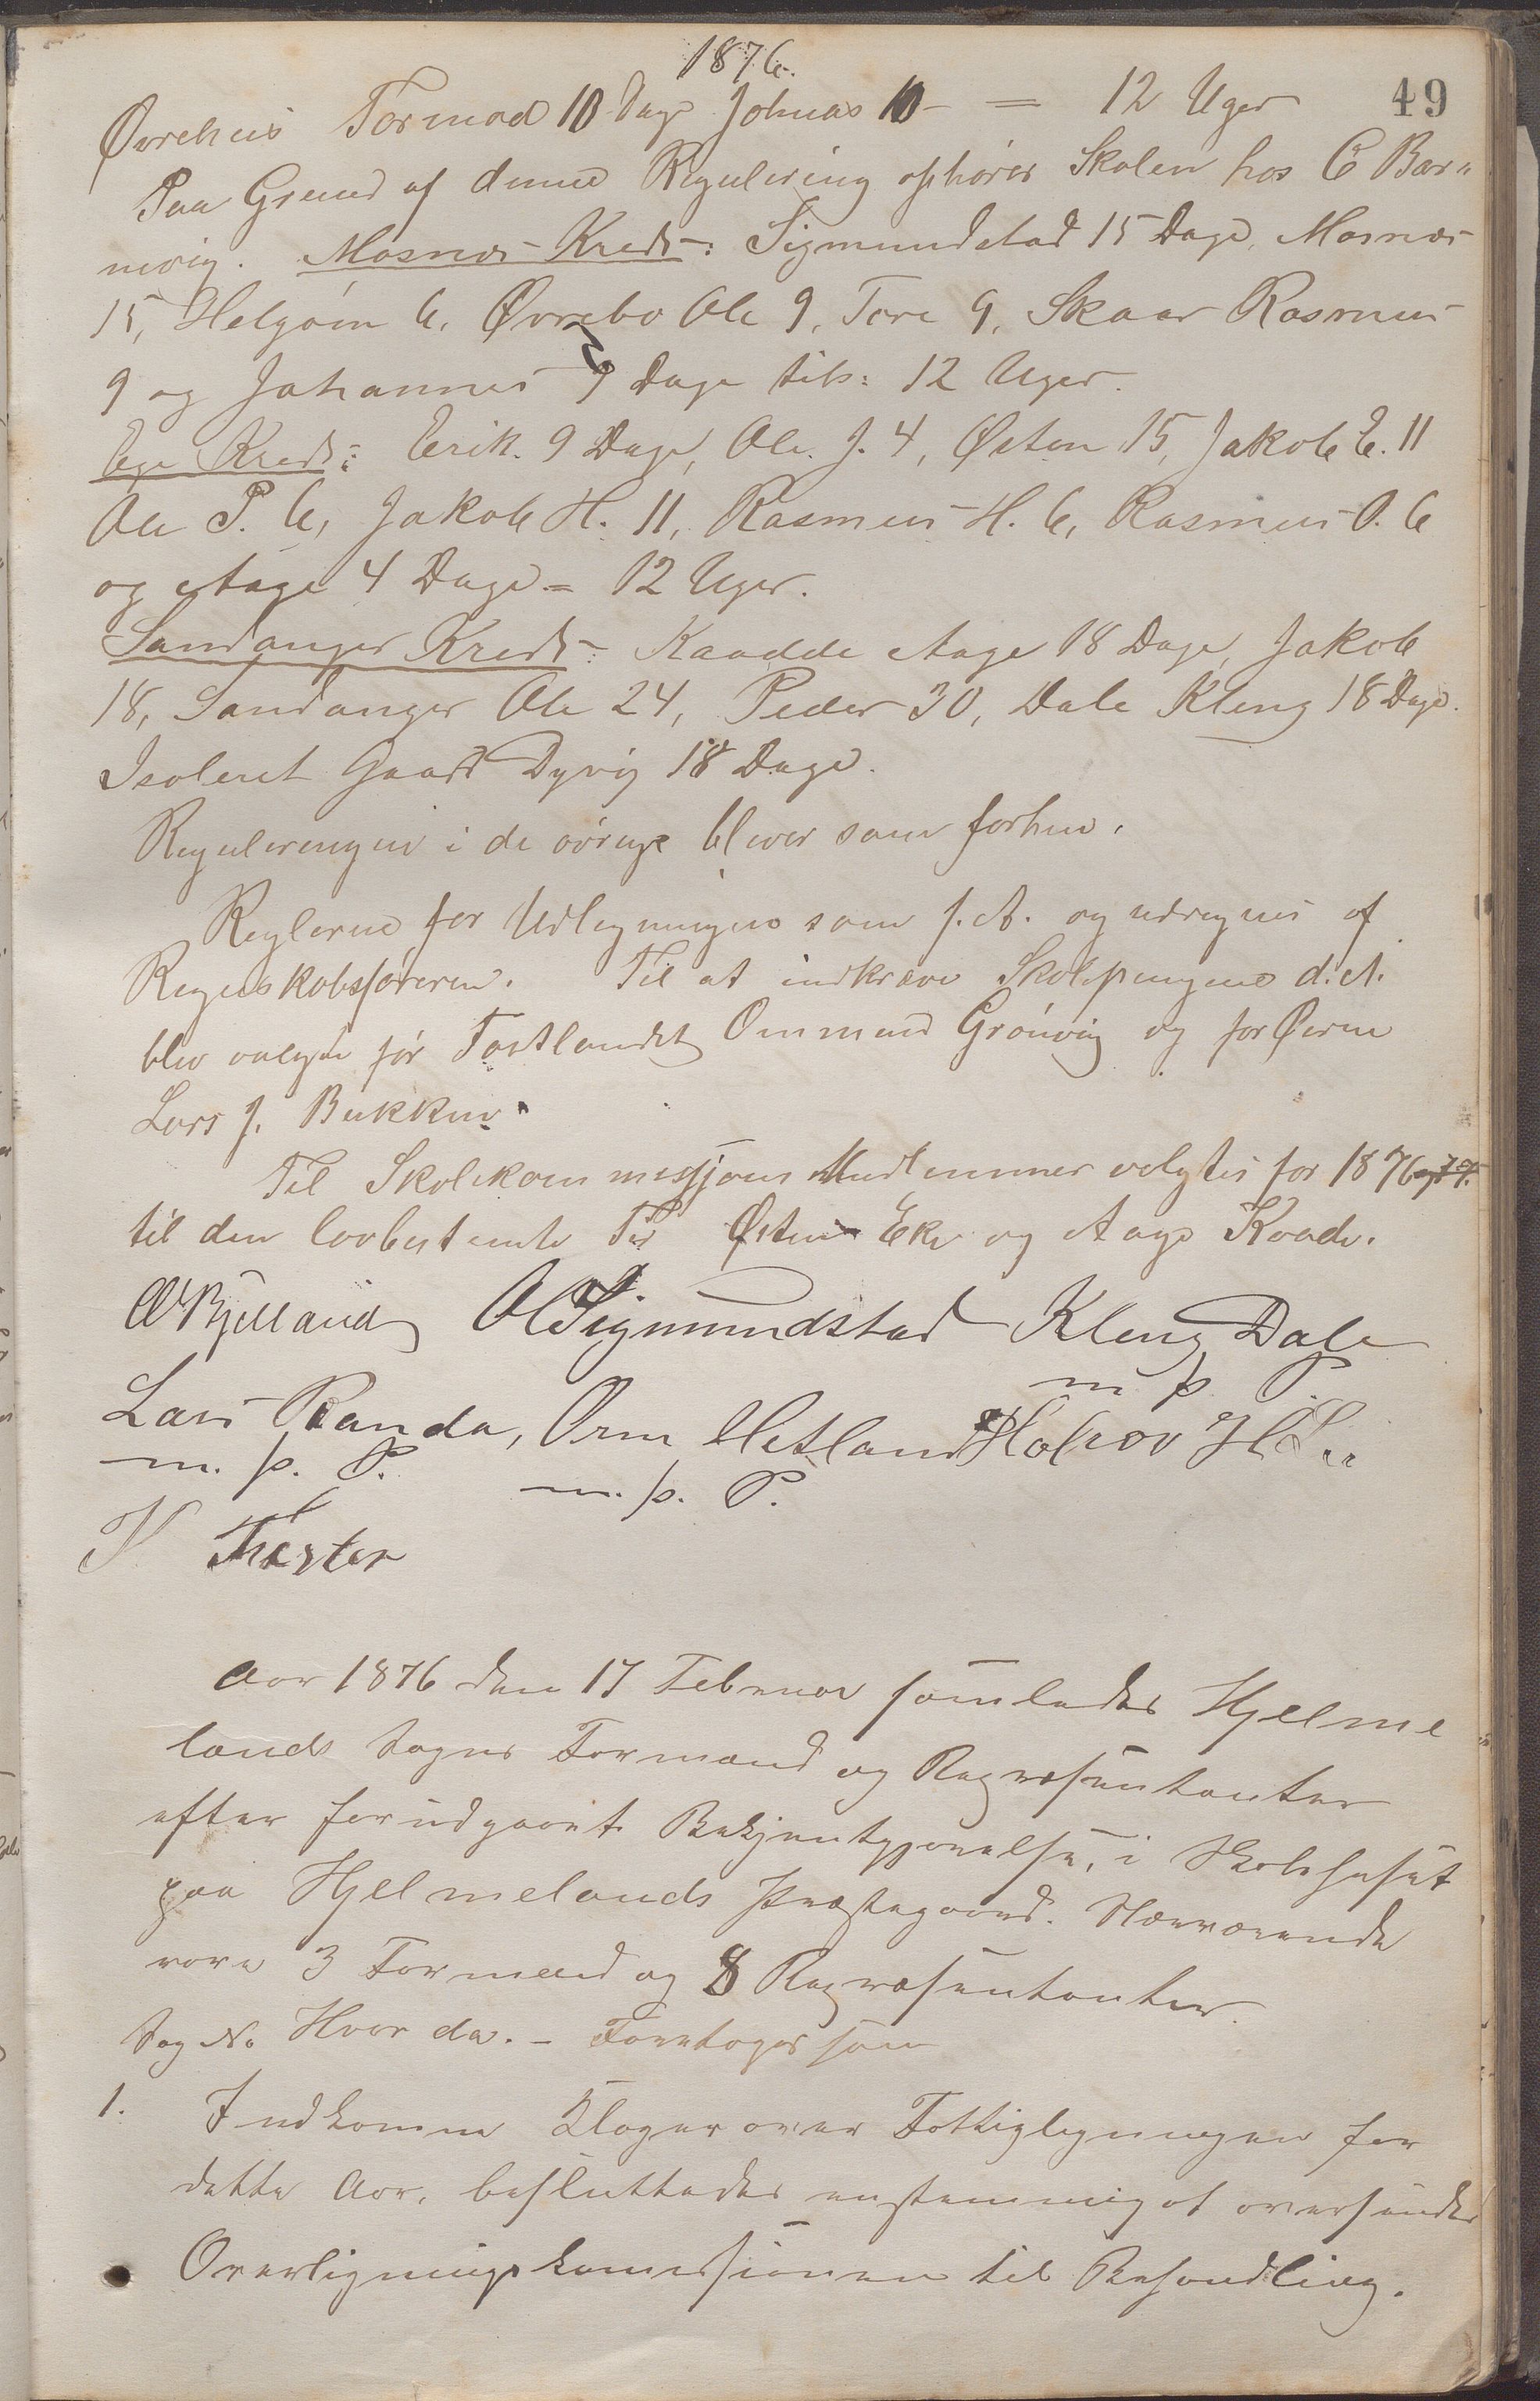 1876.
49
Øvrehus Tormod 10 Dage Johnas 10 – = 12 Uger
Paa Grund af denne Regulering ophører Skolen hos C Bar„
nevig. Mosnæs Kreds: Sigmundstad 15 Dage, Mosnæs
15, Helgøen 6, Øvrebø Ole 9, Tore 9, Skaar Rasmus
9 og Johannes 9 Dage tils: 12 Uger.
Ege Kreds: Eerik. 9 Dage, Ole J. 4, Østen 15, Jakob E. 11
Ole P. 6, Jakob H. 11, Rasmus H. 6, Rasmus O. 6
og Aage 4 Dage = 12 Uger.
Sandanger Kreds: Kaadde Aage 18 Dage, Jakob
18, Sandanger Ole 24, Peder 30, Dale Kleng 18 Dage.
Isoleret Gaard Dyvig 18 Dage.
Reguleringen i de øvrige bliver som forhen.
Reglerne for Udligningen som f. A. og udregnes af
Regnskabsføreren. Til at indkræve Skolepengene d. A.
blev valgte for Fastlandet Ommund Grønvig og for Øerne
Lars J. Bukken.
Til Skolekommissjons Medlemmer valgtes for 1876 og 77.
til den lovbestemte Tid Østen Eke og Aage Kaade.
Kjelland O Sigmundstad Kleng Dale
m. p. P.
Lars Randa, Orm Hetland
m. p. P. m. p. P.
K Træster
Aar 1876 den 17 Februar samledes Hjelme
lands Sogns Formænd og Repræsentanter
efter forudgaaet Bekjentgjørelse, i Skolehuset
paa Hjelmelands Præstegaard. Nærværende
vare 3 Formænd og 8 Repræsentanter.
Sag No Hvor da. – Foretoges som
1. Indkomne Klager over Fattigligningen for
dette Aar, besluttedes enstemmig at oversendes
Overligningskomissionen til Behandling.